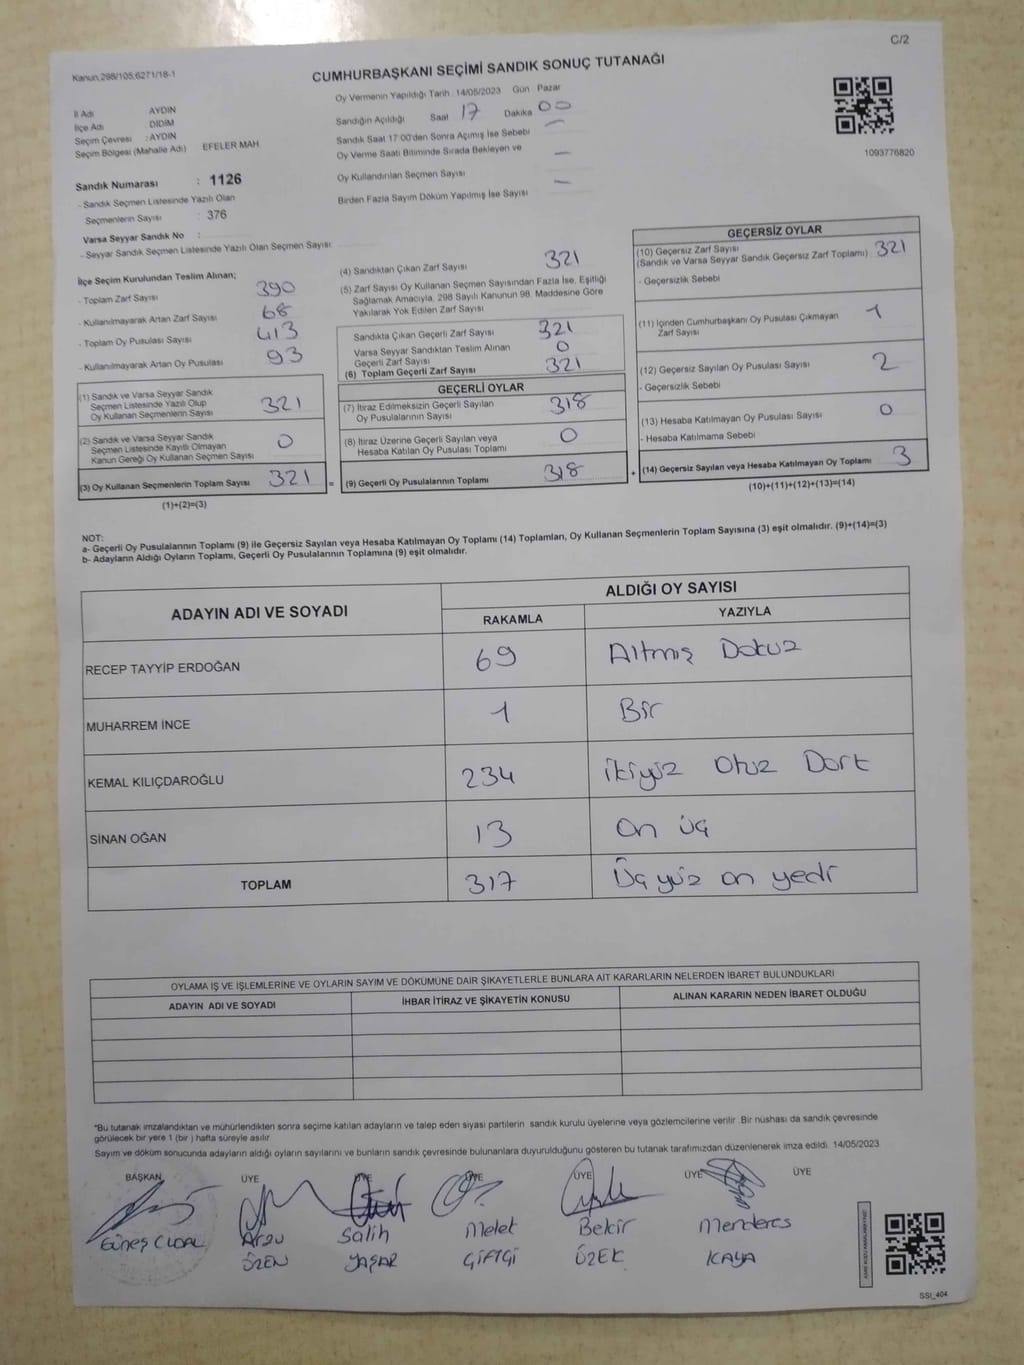 C/2
Kanun,298/105,6271/18-1
CUMHURBAŞKANI SEÇİMİ SANDIK SONUÇ TUTANAĞI
İl Adı AYDIN
İlçe Adı : DİDİM
Seçim Çevresi : AYDIN
Seçim Bölgesi (Mahalle Adı) EFELER MAH
Oy Vermenin Yapıldığı Tarih 14/05/2023 Gün Pazar
Sandığın Açıldığı Saat 17 Dakika 00
Sandık Saat 17:00'den Sonra Açımış İse Sebebi —
Oy Verme Saati Bitiminde Sırada Bekleyen ve
Oy Kullandırılan Seçmen Sayısı —
Birden Fazla Sayım Döküm Yapılmış İse Sayısı —
1093776820
Sandık Numarası : 1126
- Sandık Seçmen Listesinde Yazılı Olan
Seçmenlerin Sayısı : 376
Varsa Seyyar Sandık No :
- Seyyar Sandık Seçmen Listesinde Yazılı Olan Seçmen Sayısı:
İlçe Seçim Kurulundan Teslim Alınan;
- Toplam Zarf Sayısı 390
- Kullanılmayarak Artan Zarf Sayısı 68
- Toplam Oy Pusulası Sayısı 413
- Kullanılmayarak Artan Oy Pusulası 93
(1) Sandık ve Varsa Seyyar Sandık
Seçmen Listesinde Yazılı Olup
Oy Kullanan Seçmenlerin Sayısı 321
(2) Sandık ve Varsa Seyyar Sandık
Seçmen Listesinde Kayıtlı Olmayan
Kanun Gereği Oy Kullanan Seçmen Sayısı 0
(3) Oy Kullanan Seçmenlerin Toplam Sayısı 321 =
(1)+(2)=(3)
(4) Sandıktan Çıkan Zarf Sayısı 321
(5) Zarf Sayısı Oy Kullanan Seçmen Sayısından Fazla İse, Eşitliği
Sağlamak Amacıyla, 298 Sayılı Kanunun 98. Maddesine Göre
Yakılarak Yok Edilen Zarf Sayısı
Sandıkta Çıkan Geçerli Zarf Sayısı 321
Varsa Seyyar Sandıktan Teslim Alınan
Geçerli Zarf Sayısı 0
(6) Toplam Geçerli Zarf Sayısı 321
GEÇERLİ OYLAR
(7) İtiraz Edilmeksizin Geçerli Sayılan
Oy Pusulalarının Sayısı 318
(8) İtiraz Üzerine Geçerli Sayılan veya
Hesaba Katılan Oy Pusulası Toplamı 0
(9) Geçerli Oy Pusulalarının Toplamı 318 +
GEÇERSİZ OYLAR
(10) Geçersiz Zarf Sayısı
(Sandık ve Varsa Seyyar Sandık Geçersiz Zarf Toplamı) 321
- Geçersizlik Sebebi
(11) İçinden Cumhurbaşkanı Oy Pusulası Çıkmayan
Zarf Sayısı 1
(12) Geçersiz Sayılan Oy Pusulası Sayısı 2
- Geçersizlik Sebebi
(13) Hesaba Katılmayan Oy Pusulası Sayısı 0
- Hesaba Katılmama Sebebi
(14) Geçersiz Sayılan veya Hesaba Katılmayan Oy Toplamı 3
(10)+(11)+(12)+(13)=(14)
NOT:
a- Geçerli Oy Pusulalarının Toplamı (9) ile Geçersiz Sayılan veya Hesaba Katılmayan Oy Toplamı (14) Toplamları, Oy Kullanan Seçmenlerin Toplam Sayısına (3) eşit olmalıdır. (9)+(14)=(3)
b- Adayların Aldığı Oyların Toplamı, Geçerli Oy Pusulalarının Toplamına (9) eşit olmalıdır.
ADAYIN ADI VE SOYADI ALDIĞI OY SAYISI
RAKAMLA YAZIYLA
RECEP TAYYİP ERDOĞAN 69 Altmış Dokuz
MUHARREM İNCE 1 Bir
KEMAL KILIÇDAROĞLU 234 ikiyüz Otuz Dört
SİNAN OĞAN 13 On üç
TOPLAM 317 Üçyüz on yedi
OYLAMA İŞ VE İŞLEMLERİNE VE OYLARIN SAYIM VE DÖKÜMÜNE DAİR ŞİKAYETLERLE BUNLARA AİT KARARLARIN NELERDEN İBARET BULUNDUKLARI
ADAYIN ADI VE SOYADI İHBAR İTİRAZ VE ŞİKAYETİN KONUSU ALINAN KARARIN NEDEN İBARET OLDUĞU
*Bu tutanak imzalandıktan ve mühürlendikten sonra seçime katılan adayların ve talep eden siyasi partilerin sandık kurulu üyelerine veya gözlemcilerine verilir. Bir nüshası da sandık çevresinde
görülecek bir yere 1 (bir ) hafta süreyle asılır
Sayım ve döküm sonucunda adayların aldığı oyların sayılarını ve bunların sandık çevresinde bulunanlara duyurulduğunu gösteren bu tutanak tarafımızdan düzenlenerek imza edildi. 14/05/2023
BAŞKAN ÜYE ÜYE ÜYE ÜYE ÜYE
Güneş Arzu Salih Melet Bekir Menderes
ÖZEN YAŞAR ÇİFTÇİ ÖZEK KAYA
SSI_404